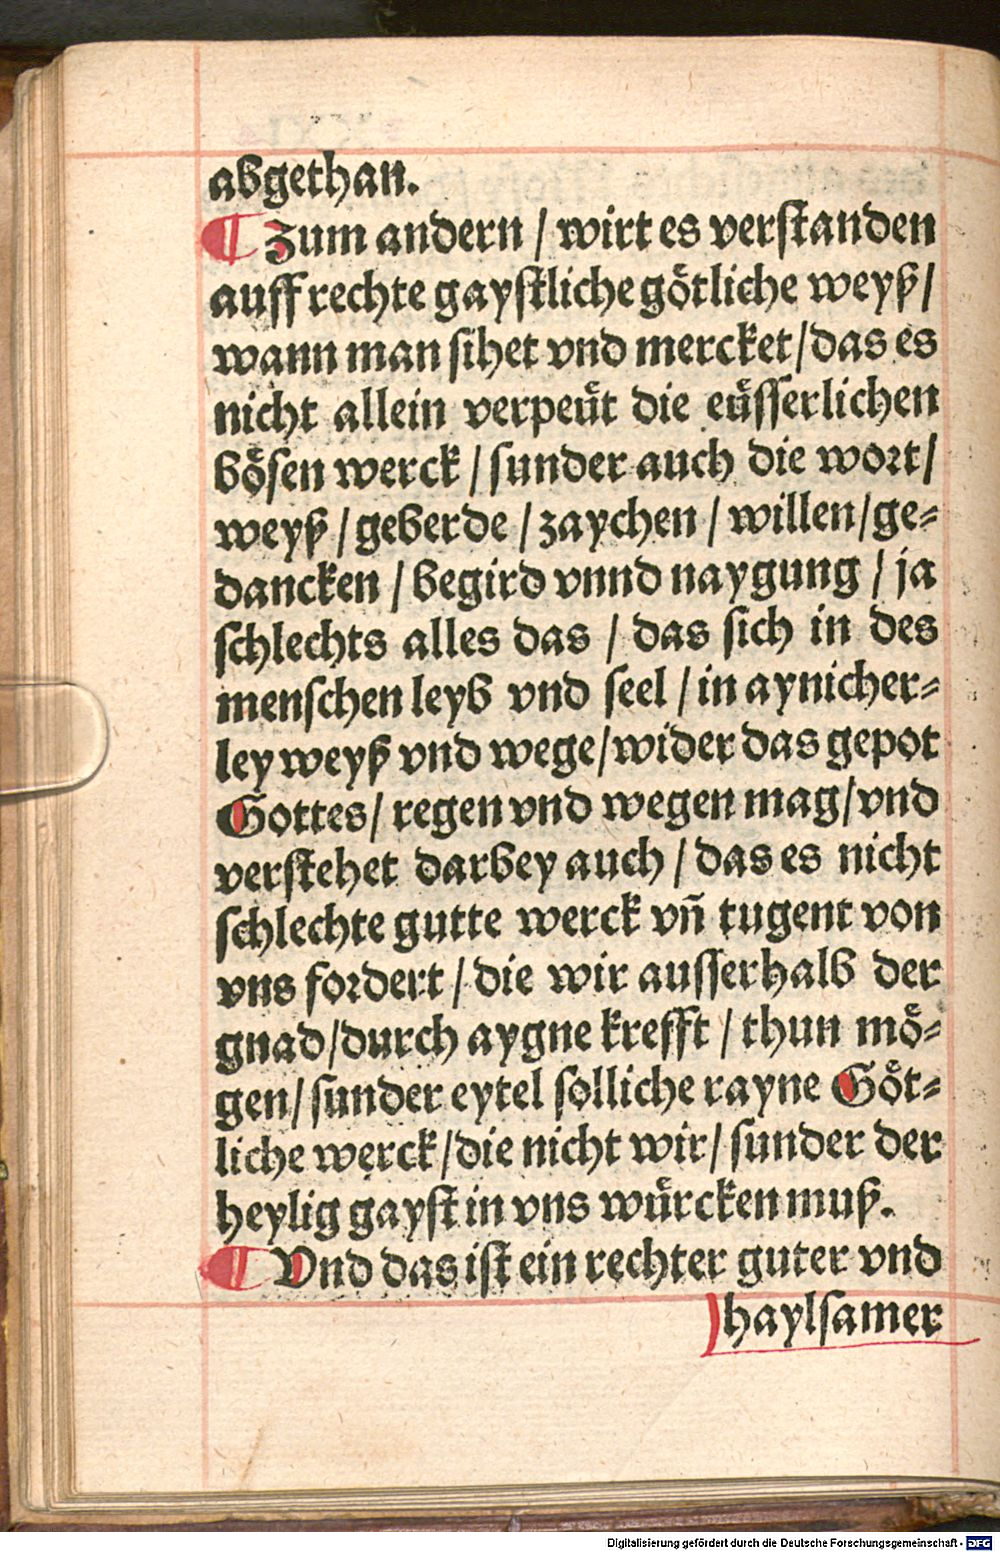 abgethan.
¶ Zum andern / wirt es verstanden
auff rechte gaystliche goͤtliche weyß /
wann man sihet vnd mercket / das es
nicht allein verpeuͤt die euͤsserlichen
boͤsen werck / sunder auch die wort /
weyß / geberde / zaychen / willen / ge⸗
dancken / begird vnnd naygung / ja
schlechts alles das / das sich in des
menschen leyb vnd seel / in aynicher⸗
ley weyß vnd wege / wider das gepot
Gottes / regen vnd wegen mag / vnd
verstehet darbey auch / das es nicht
schlechte gutte werck vñ tugent von
vns fordert / die wir ausserhalb der
gnad / durch aygne krefft / thun moͤ⸗
gen / sunder eytel solliche rayne Goͤt⸗
liche werck / die nicht wir / sunder der
heylig gayst in vns wuͤrcken muß.
¶ Vnd das ist ein rechter guter vnd
haylsamer
Digitalisierung gefördert durch die Deutsche Forschungsgemeinschaft - DFG